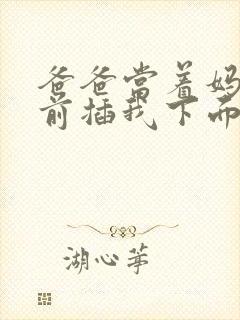 爸爸当着妈
前插我下面
湖心茅